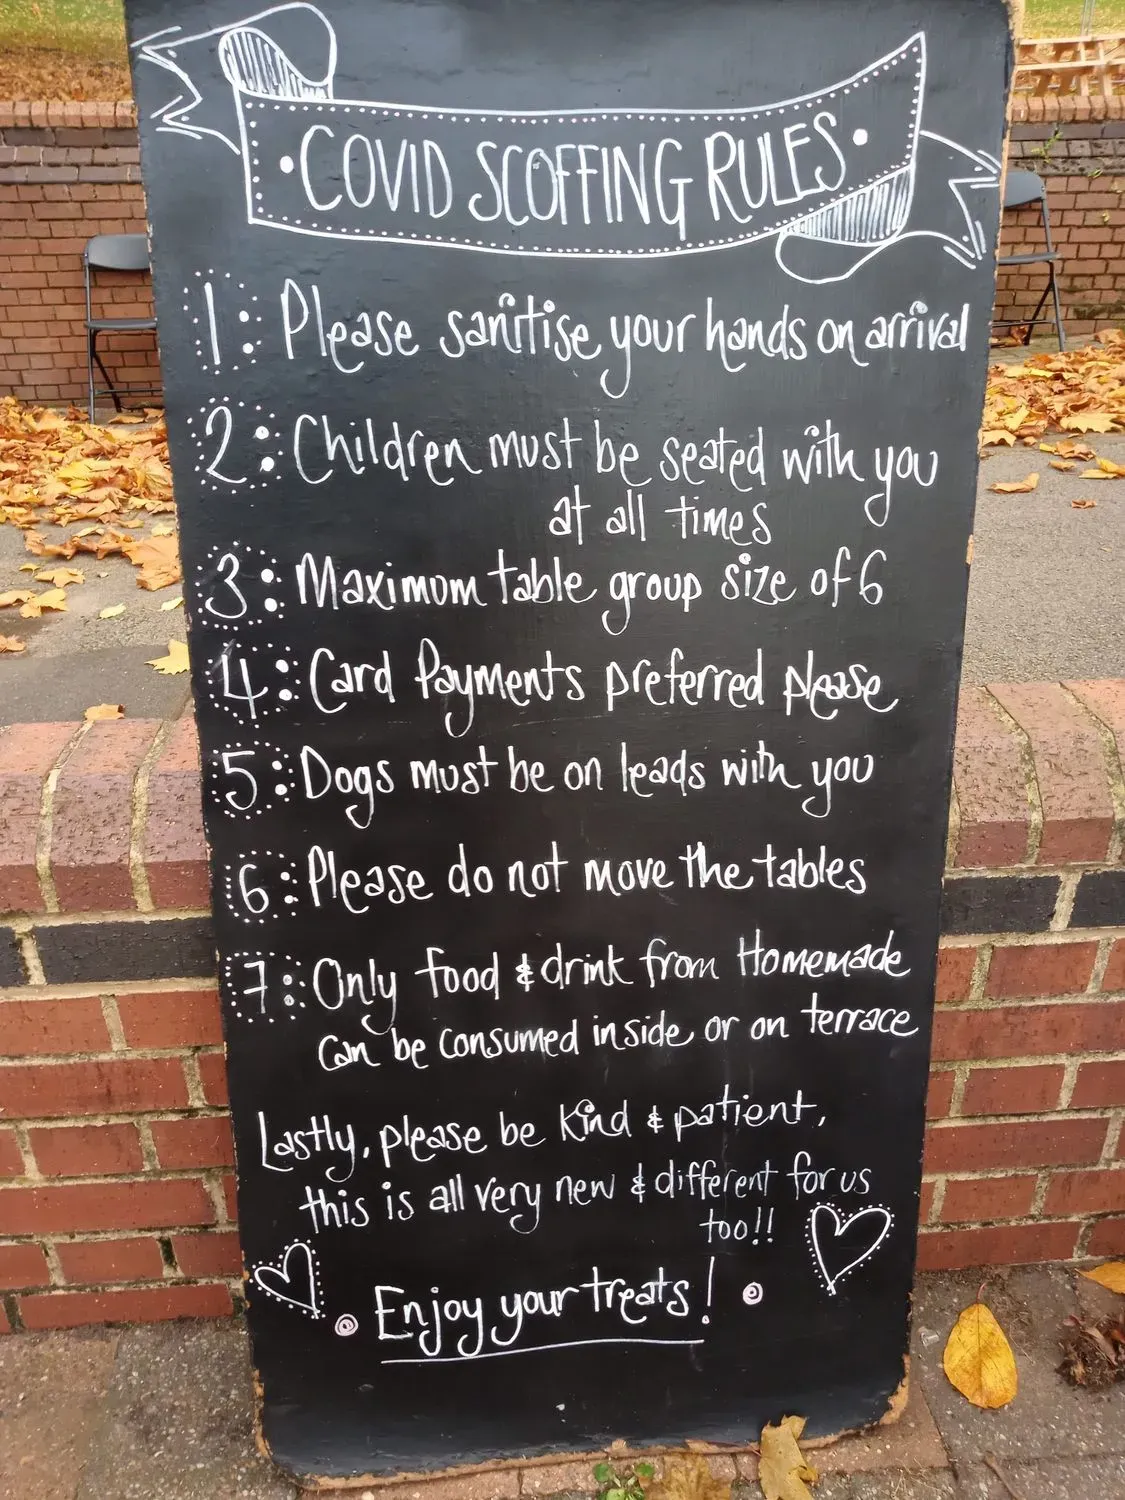 COVID SCOFFING RULES
1: Please sanitise your hands on arrival
2: Children must be seated with you
at all times
3: Maximum table group size of 6
4: Card Payments preferred please
5: Dogs must be on leads with you
6: Please do not move the tables
7: Only food & drink from Homemade
can be consumed inside or on terrace
Lastly, please be kind & patient,
this is all very new & different for us
too!!
Enjoy your treats!